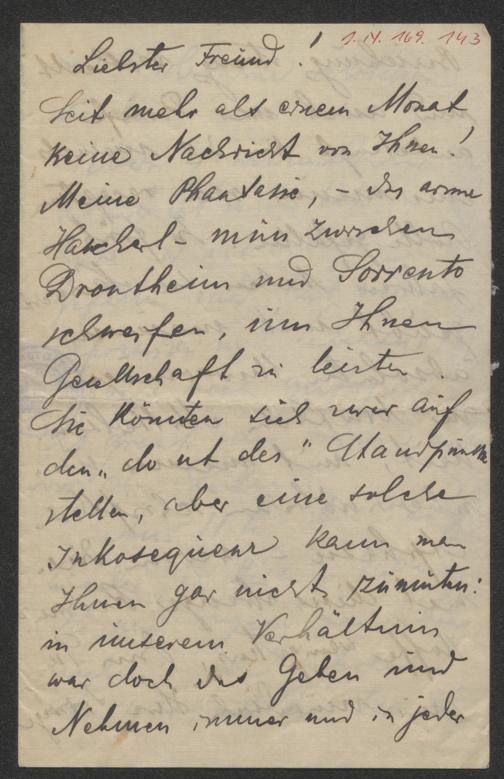 Liebster Freund!
1. IV. 169. 143
Seit mehr als einem Monat
keine Nachricht von Ihnen!
Meine Phantasie, – das arme
Hascherl – muss zwischen
Drontheim und Sorrento
schweifen, um Ihnen
Gesellschaft zu leisten.
Sie könnten sich zwar auf
den „do ut des" Standpunkt
stellen, aber eine solche
Inkosequenz kann man
Ihnen gar nicht zumuten:
in unserem Verhältnis
war doch das Geben und
Nehmen immer und in jeder